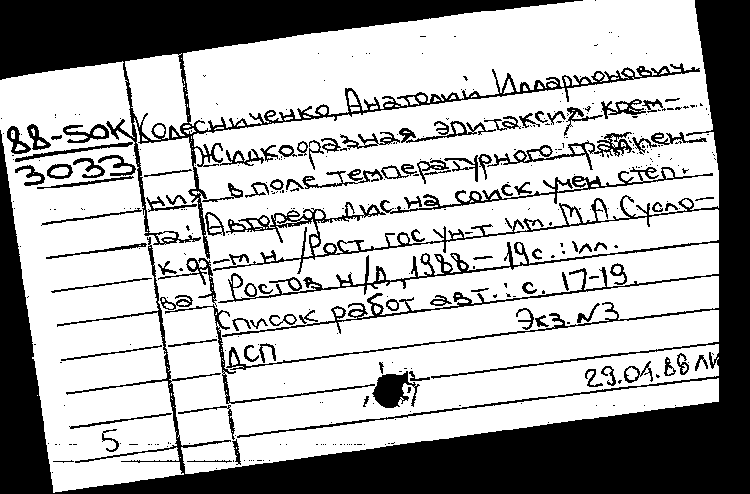 88-50К
3033
Колесниченко, Анатолий Илларионович.
Жидкофазная эпитаксия крем-
ния в поле температурного градиен-
та: Автореф. дис. на соиск. учен. степ.
к. ф-м. н. /Рост. гос ун-т им. М.А. Сусло-
ва.- Ростов н/Д, 1988.- 19с.: ил.
Список работ авт.: с. 17-19.
ДСП Экз. N3
29.04.88 ЛИ
5